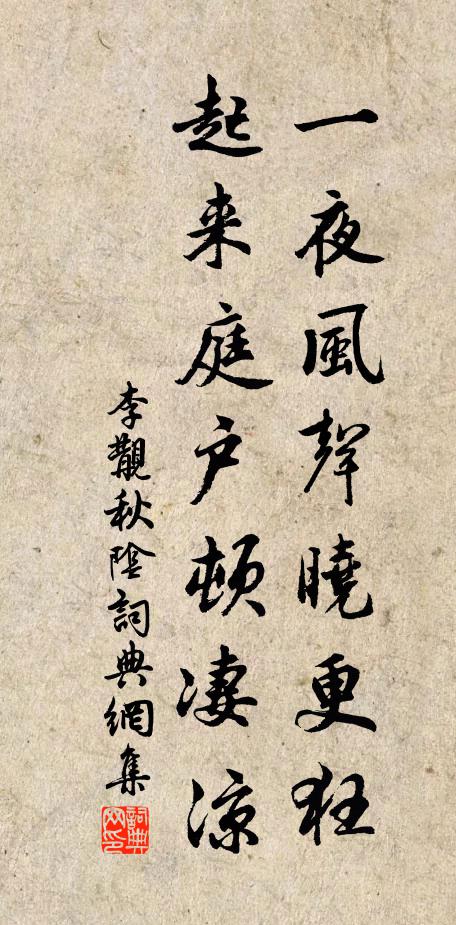 一夜風聲曉更狂
起来庭户頓凄凉
李觀秋陰詞典網集
詞典網印